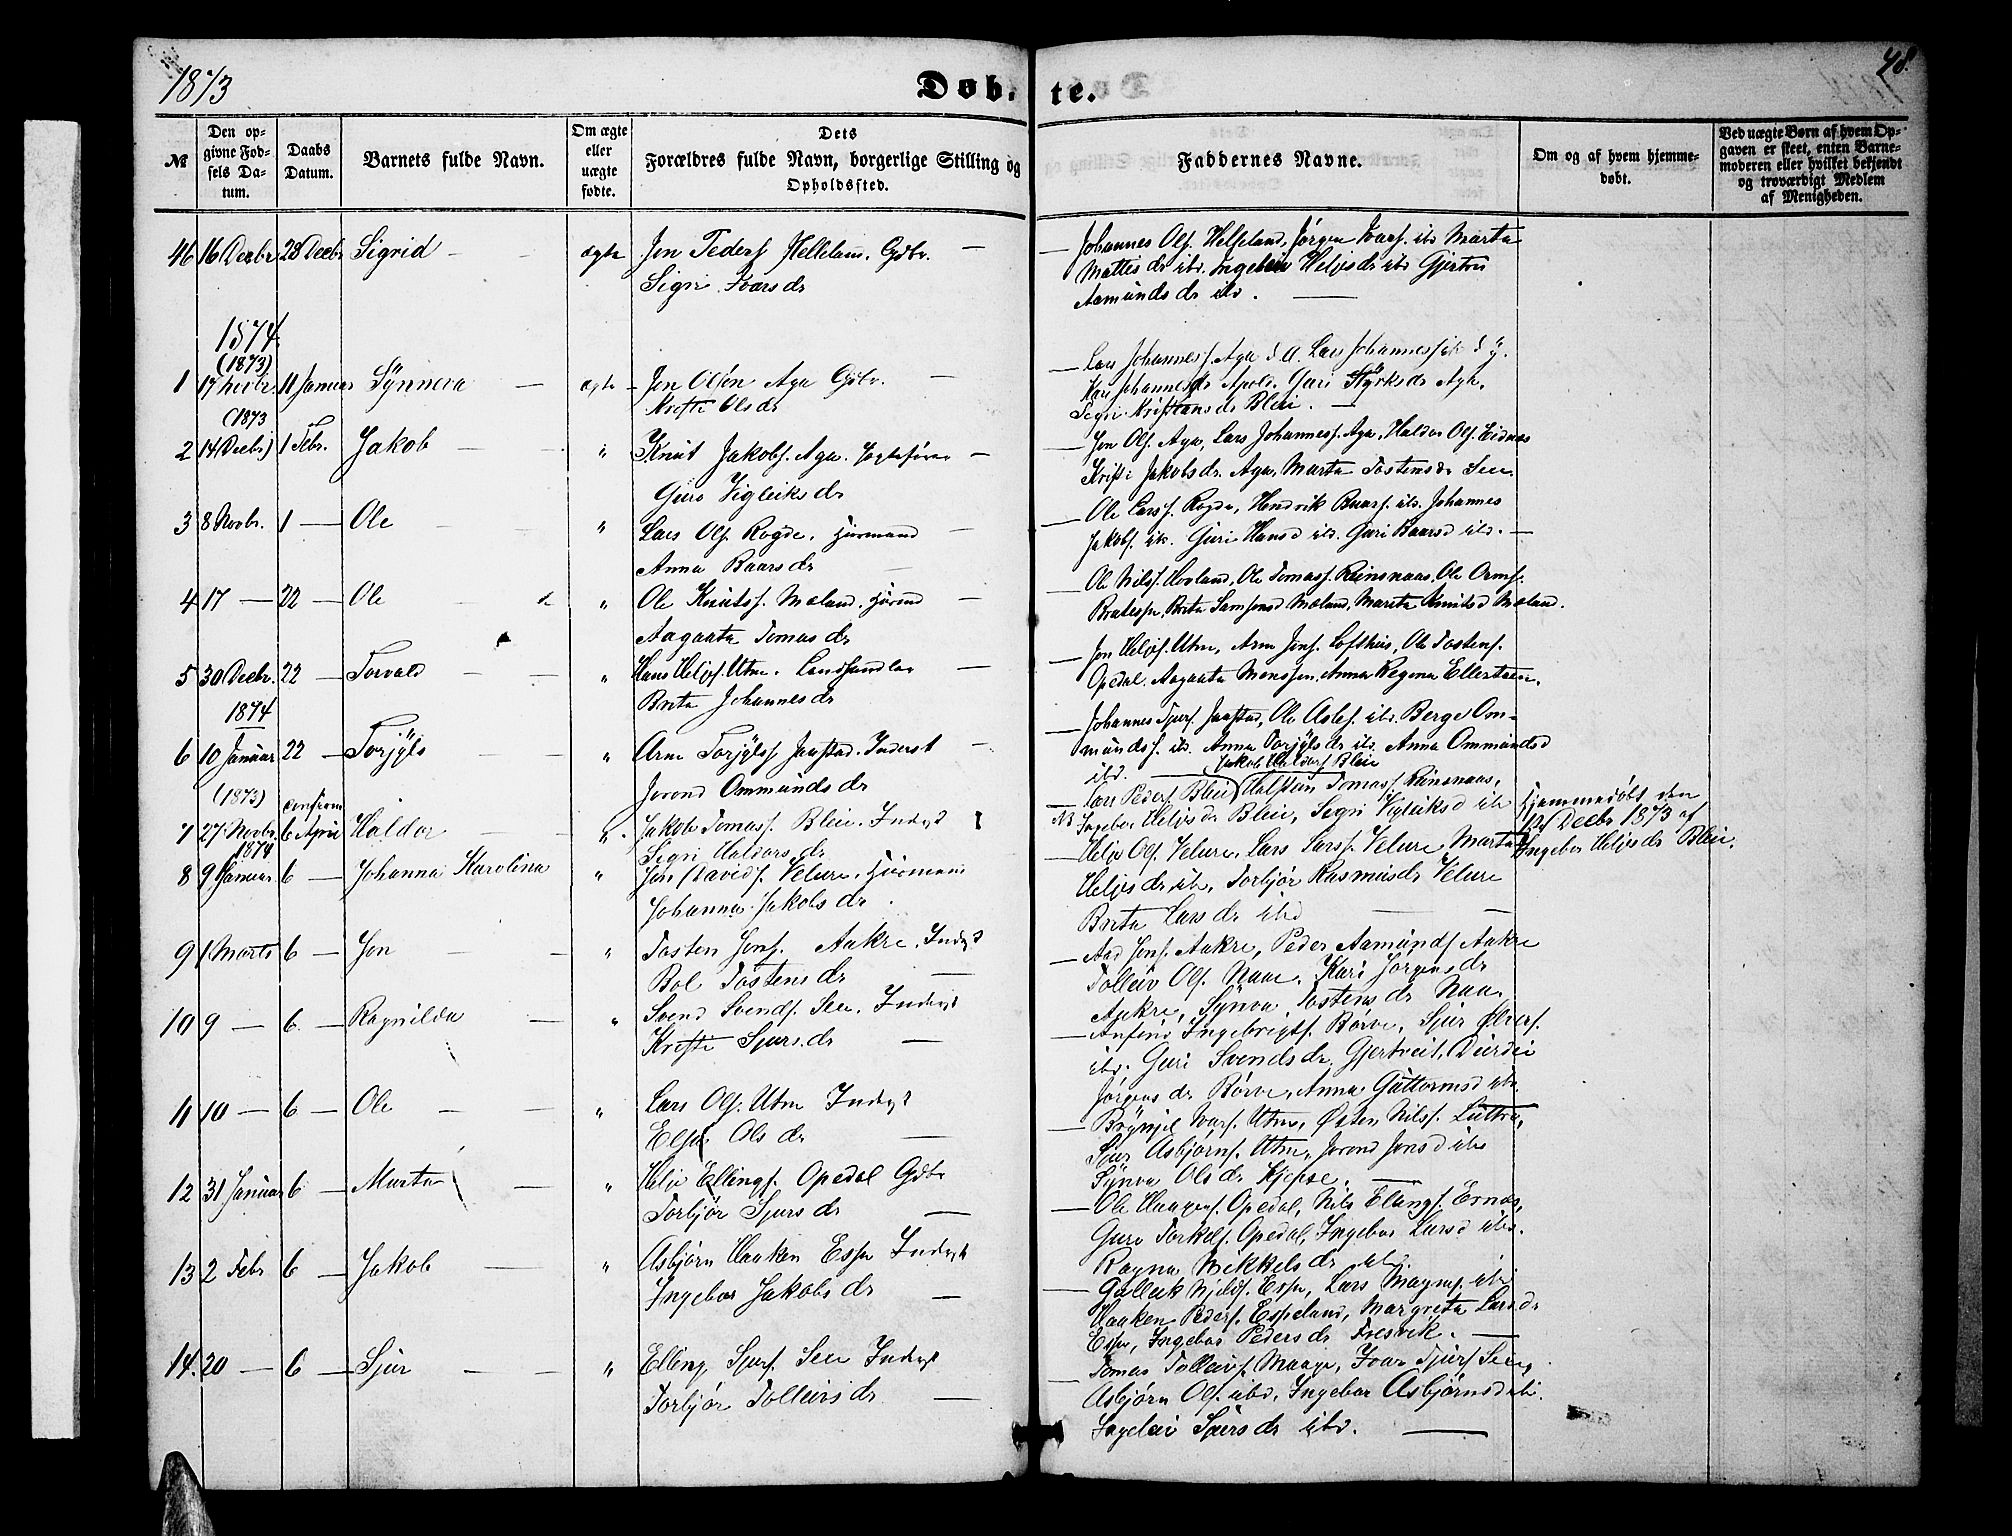 1873
Døb-
te.
48.
№
Den op-
givne Fød-
sels Da-
tum.
Daabs
Datum.
Barnets fulde Navn.
Om ægte
eller
uægte
fødte.
Dets
Forældres fulde Navn, borgerlige Stilling og
Opholdssted.
Faddernes Navne.
Om og af hvem hjemme-
døbt.
Ved uægte Børn af hvem Op-
gaven er skeet, enten Barne-
moderen eller hvilket bekjendt
og troværdigt Medlem
af Menigheden.
46 16 Decbr 28 Decbr Sigrid — ægte Jon Peders Helleland. Gdbr. —
Sigri Ivarsdr
— Johannes Ols. Helleland, Jørgen Ivars. ibd Marta
Mattisdr ibd. Ingebor Heljesdr ibd Gjertru
Aamundsdr ibd. —
1874
(1873)
1 17 Novbr. 11 Januar Synneva — ægte — Jon Olsen Aga Gdbr. —
Kristi Olsdr
— Lars Johanness. Aga d. æ. Lars Johanness. ib d. y.
Kari Johannesdr Apold. Guri Styrksdr Aga.
Segri Kristiansdr Bleie. —
(1873
2 14 Decbr) 1 Febr. Jakob — " Knut Jakobs. Aga. —
Guro Vigleiksdr
— Jon Ols. Aga, Lars Johanness. Aga, Haldor Ols. Eidnes
Kristi Jakobsdr. Aga, Marta Tostensdr See.
3 8 Novbr. 1 — Ole — " Lars Ols. Rogde. Huusmand —
Anna Baarsdr
— Ole Larss. Rogde, Hendrik Baars. ibd. Johannes
Jakobs. ib. Guri Hansd ibd. Guri Baarsd ibd. —
4 17 — 22 — Ole — " Ole Knutss. Mæland. Husmd —
Aagaata Tomasdr
— Ole Nilss. Hovland, Ole Tomass. Reinsnaas, Ole Orms.
Bratespe, Brita Samsonsd Mæland, Marita Knutsd Mæland.
5 30 Decbr. 22 — Torvald — " Hans Heljes. Utne. Landhandler —
Brita Johannesdr
— Jon Heljes. Utne, Arne Jons. Lofthus, Ole Tostens.
Opedal. Aagaata Monssen. Anna Regina Ellertsen.
1874
6 10 Januar 22 — Torjyls — " Arne Torjylss Jaastad. Inderst —
Jorond Ommundsdr
— Johannes Sjurs. Jaastad, Ole Aslss. ibd. Berge Om-
munds. ib. Anna Torjylsdr ibd. Anna Ommundsd
ibd. —
(1873) confirm
7 27. Novbr. 6 April Haldor — " Jakob Tomass. Bleie. Inderst
Segri Haldorsdr
Jakob Haldors Bleie
— Lars Peders Bleie Halstein Tomass. Reinsnaas,
NB Ingebor Heljesdr Bleie, Segri Vigleiksd ib
Hjemmedøbt den
12t Decbr 1873 af
Ingebor Heljesdr Bleie.
1874
8 9 Januar 6 — Johanna Karolina " Jon Davids. Velure. Huusmand
Johanna Jakobsdr
— Helje Ols. Velure. Lars Larss. Velure, Marta
Heljesdr ib, Torbjør Rasmusdr Velure
Brita Larsdr ibd —
9 1. Marts 6 — Jon — " Tosten Jons. Aakre. Inderst
Bol Tostensdr —
— Aad Jons. Aakre, Peder Aamunds Aakre
Tolleiv Ols. Naae. Kari Jørgensdr
Aakre, Synva Tostensdr Naa.
10 9 — 6. — Ragnilda — " Svend Svends. See. Inderst
Kristi Sjursdr —
— Anfind Ingebrigts. Børve, Sjur Olvers.
ibd. Guri Svendsdr Gjertveit, Durdei
Jørgensdr Børve, Anna Guttormsd ibd.
11 10 — 6 — Ole — " Lars Ols. Utne Inderst
Elsa Olsdr —
— Brynjel Ivars. Utne, Østen Nilss. Lutro,
Sjur Asbjørns. Utne, Jorond Jonsd ibd
Synva Olsdr Kjepse. —
12 31 Januar 6 — Marta — " Helje Ellings. Opedal Gdbr
Torbjør Sjursdr —
— Ole Haagens. Opedal, Nils Elings. Ernes,
Guro Torkels. Opedal, Ingebor Larsd ibd.
Ragna Mikkelsdr ibd.
13 2 Febr 6 — Jakob — " Asbjørn Haaken Espe Inderst
Ingebor Jakobsdr —
— Gulleik Njelds. Espe, Lars Magnes. ibd
Haaken Peders. Espeland, Margreta Larsdr
Espe, Ingebor Pedersdr Fresvik. —
14. 20 — 6 — Sjur — " Elling Sjurs. See Inderst
Torbjør Tolleivsdr —
— Tomas Tolleivs. Maage, Ivar Sjurs See,
Asbjørn Ols. ibd, Ingebor Asbjørnsd ib.
Ingeleiv Sjursdr ibd. —